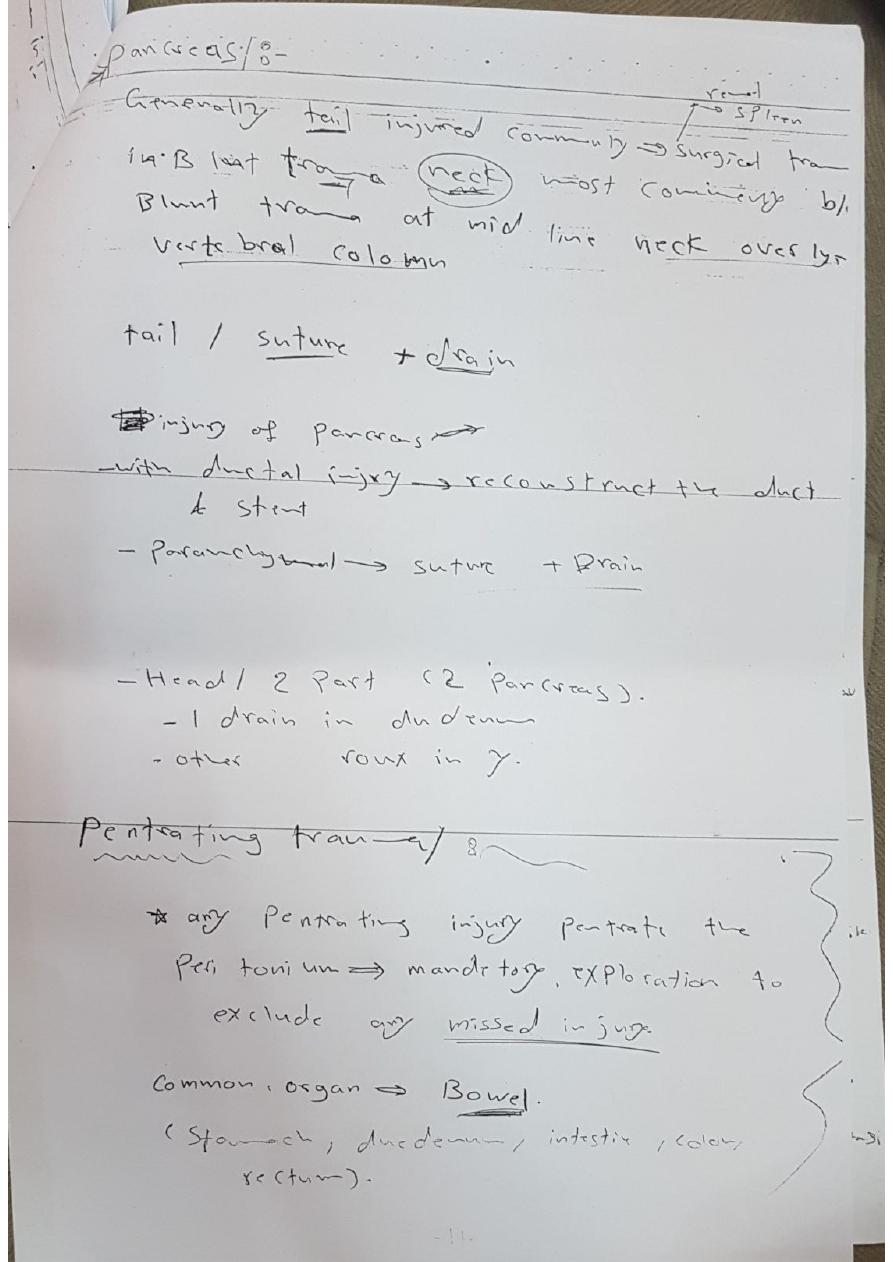 Pancreas/:-
renal
→ spleen
Generally tail injured commonly ⇒ surgical tram
in Blunt trama neck most commenly b/c
Blunt trama at mid line neck overlys
vertebral colomn
tail / suture + drain
injury of pancreas →
-with ductal injury → reconstruct the duct
& stent
- Paranchymal → suture + Drain
- Head / 2 Part (2 Pancreas).
- 1 drain in dudenum
- other roux in y.
Pentrating trauma/:
* any Pentrating injury pentrate the
Peritonium ⇒ mandetory exploration to
exclude any missed injury.
Common organ ⇒ Bowel.
(Stomach, duedenum, intestin, colon,
rectum).
-11-